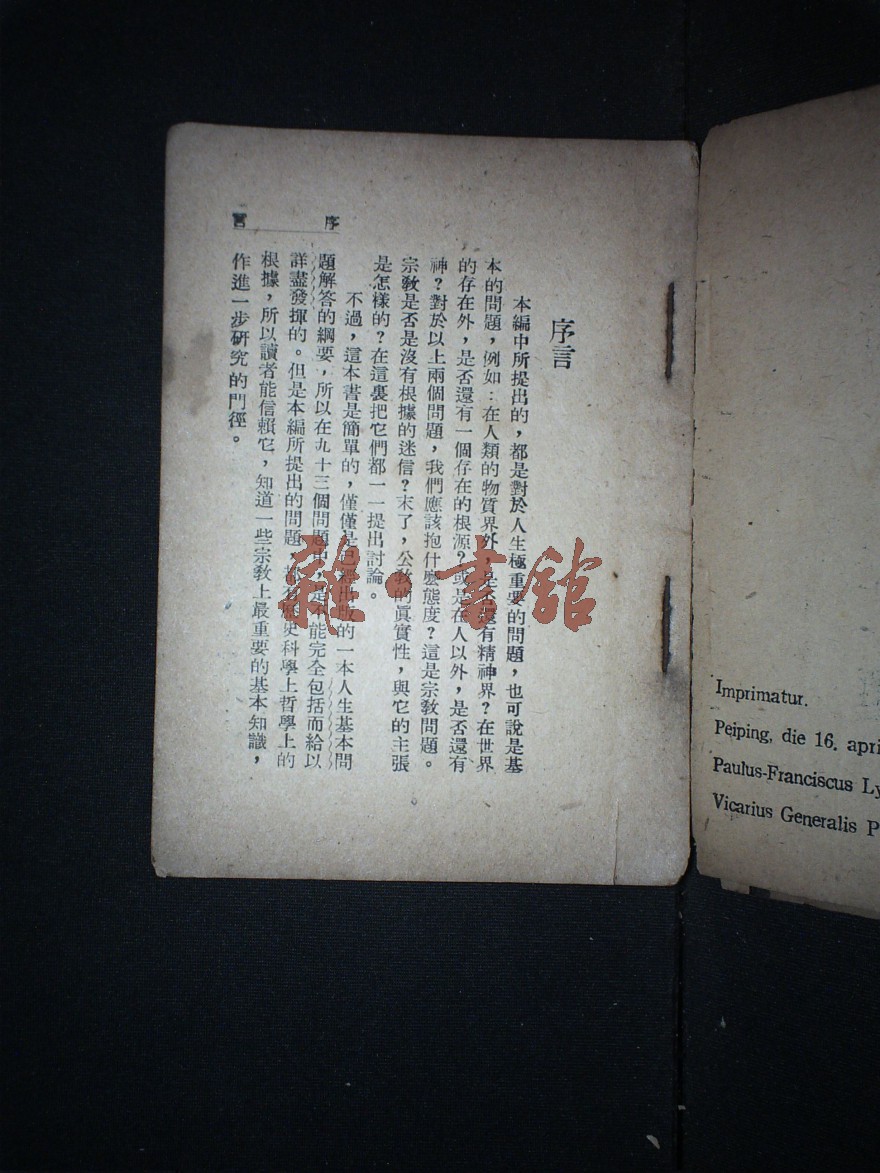 序言
本編中所提出的，都是對於人生極重要的問題，也可說是基
本的問題，例如：在人類的物質界外，是否還有精神界？在世界
的存在外，是否還有一個存在的根源？或是在人以外，是否還有
神？對於以上兩個問題，我們應該抱什麼態度？這是宗教問題。
宗教是否是沒有根據的迷信？末了，公教的眞實性，與它的主張
是怎樣的？在這裏把它們都一一提出討論。
不過，這本書是簡單的，僅僅是已經出版的一本人生基本問
題解答的綱要，所以在九十三個問題中，是不能完全包括而給以
詳盡發揮的。但是本編所提出的問題，都有歷史科學上哲學上的
根據，所以讀者能信賴它，知道一些宗教上最重要的基本知識，
作進一步研究的門徑。
序言
雜·書館
Imprimatur.
Peiping, die 16. apri
Paulus-Franciscus Ly
Vicarius Generalis P